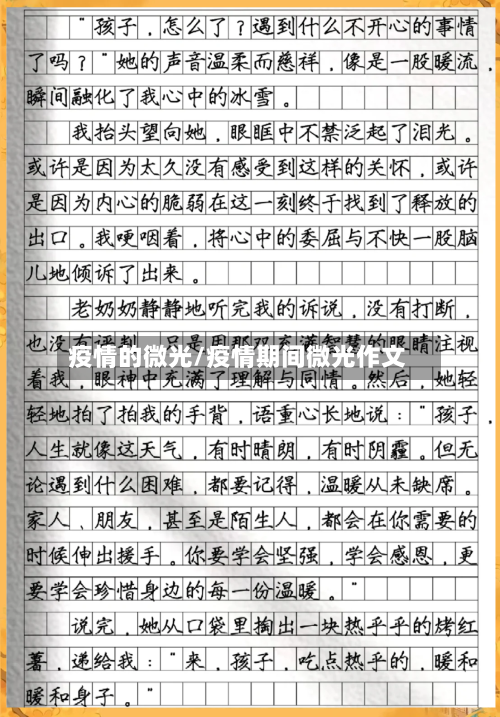 “孩子，怎么了？遇到什么不开心的事情
了吗？”她的声音温柔而慈祥，像是一股暖流，
瞬间融化了我心中的冰雪。
我抬头望向她，眼眶中不禁泛起了泪光。
或许是因为太久没有感受到这样的关怀，或许
是因为内心的脆弱在这一刻终于找到了释放的
出口。我哽咽着，将心中的委屈与不快一股脑
儿地倾诉了出来。
老奶奶静静地听完我的诉说，没有打断，
也没有评判，只是用那双充满智慧的眼睛注视
疫情的微光/疫情期间微光作文
着我，眼神中充满了理解与同情。然后，她轻
轻地拍了拍我的手背，语重心长地说：“孩子，
人生就像这天气，有时晴朗，有时阴霾。但无
论遇到什么困难，都要记得，温暖从未缺席。
家人、朋友，甚至是陌生人，都会在你需要的
时候伸出援手。你要学会坚强，学会感恩，更
要学会珍惜身边的每一份温暖。”
说完，她从口袋里掏出一块热乎乎的烤红
薯，递给我：“来，孩子，吃点热乎的，暖和
暖和身子。”